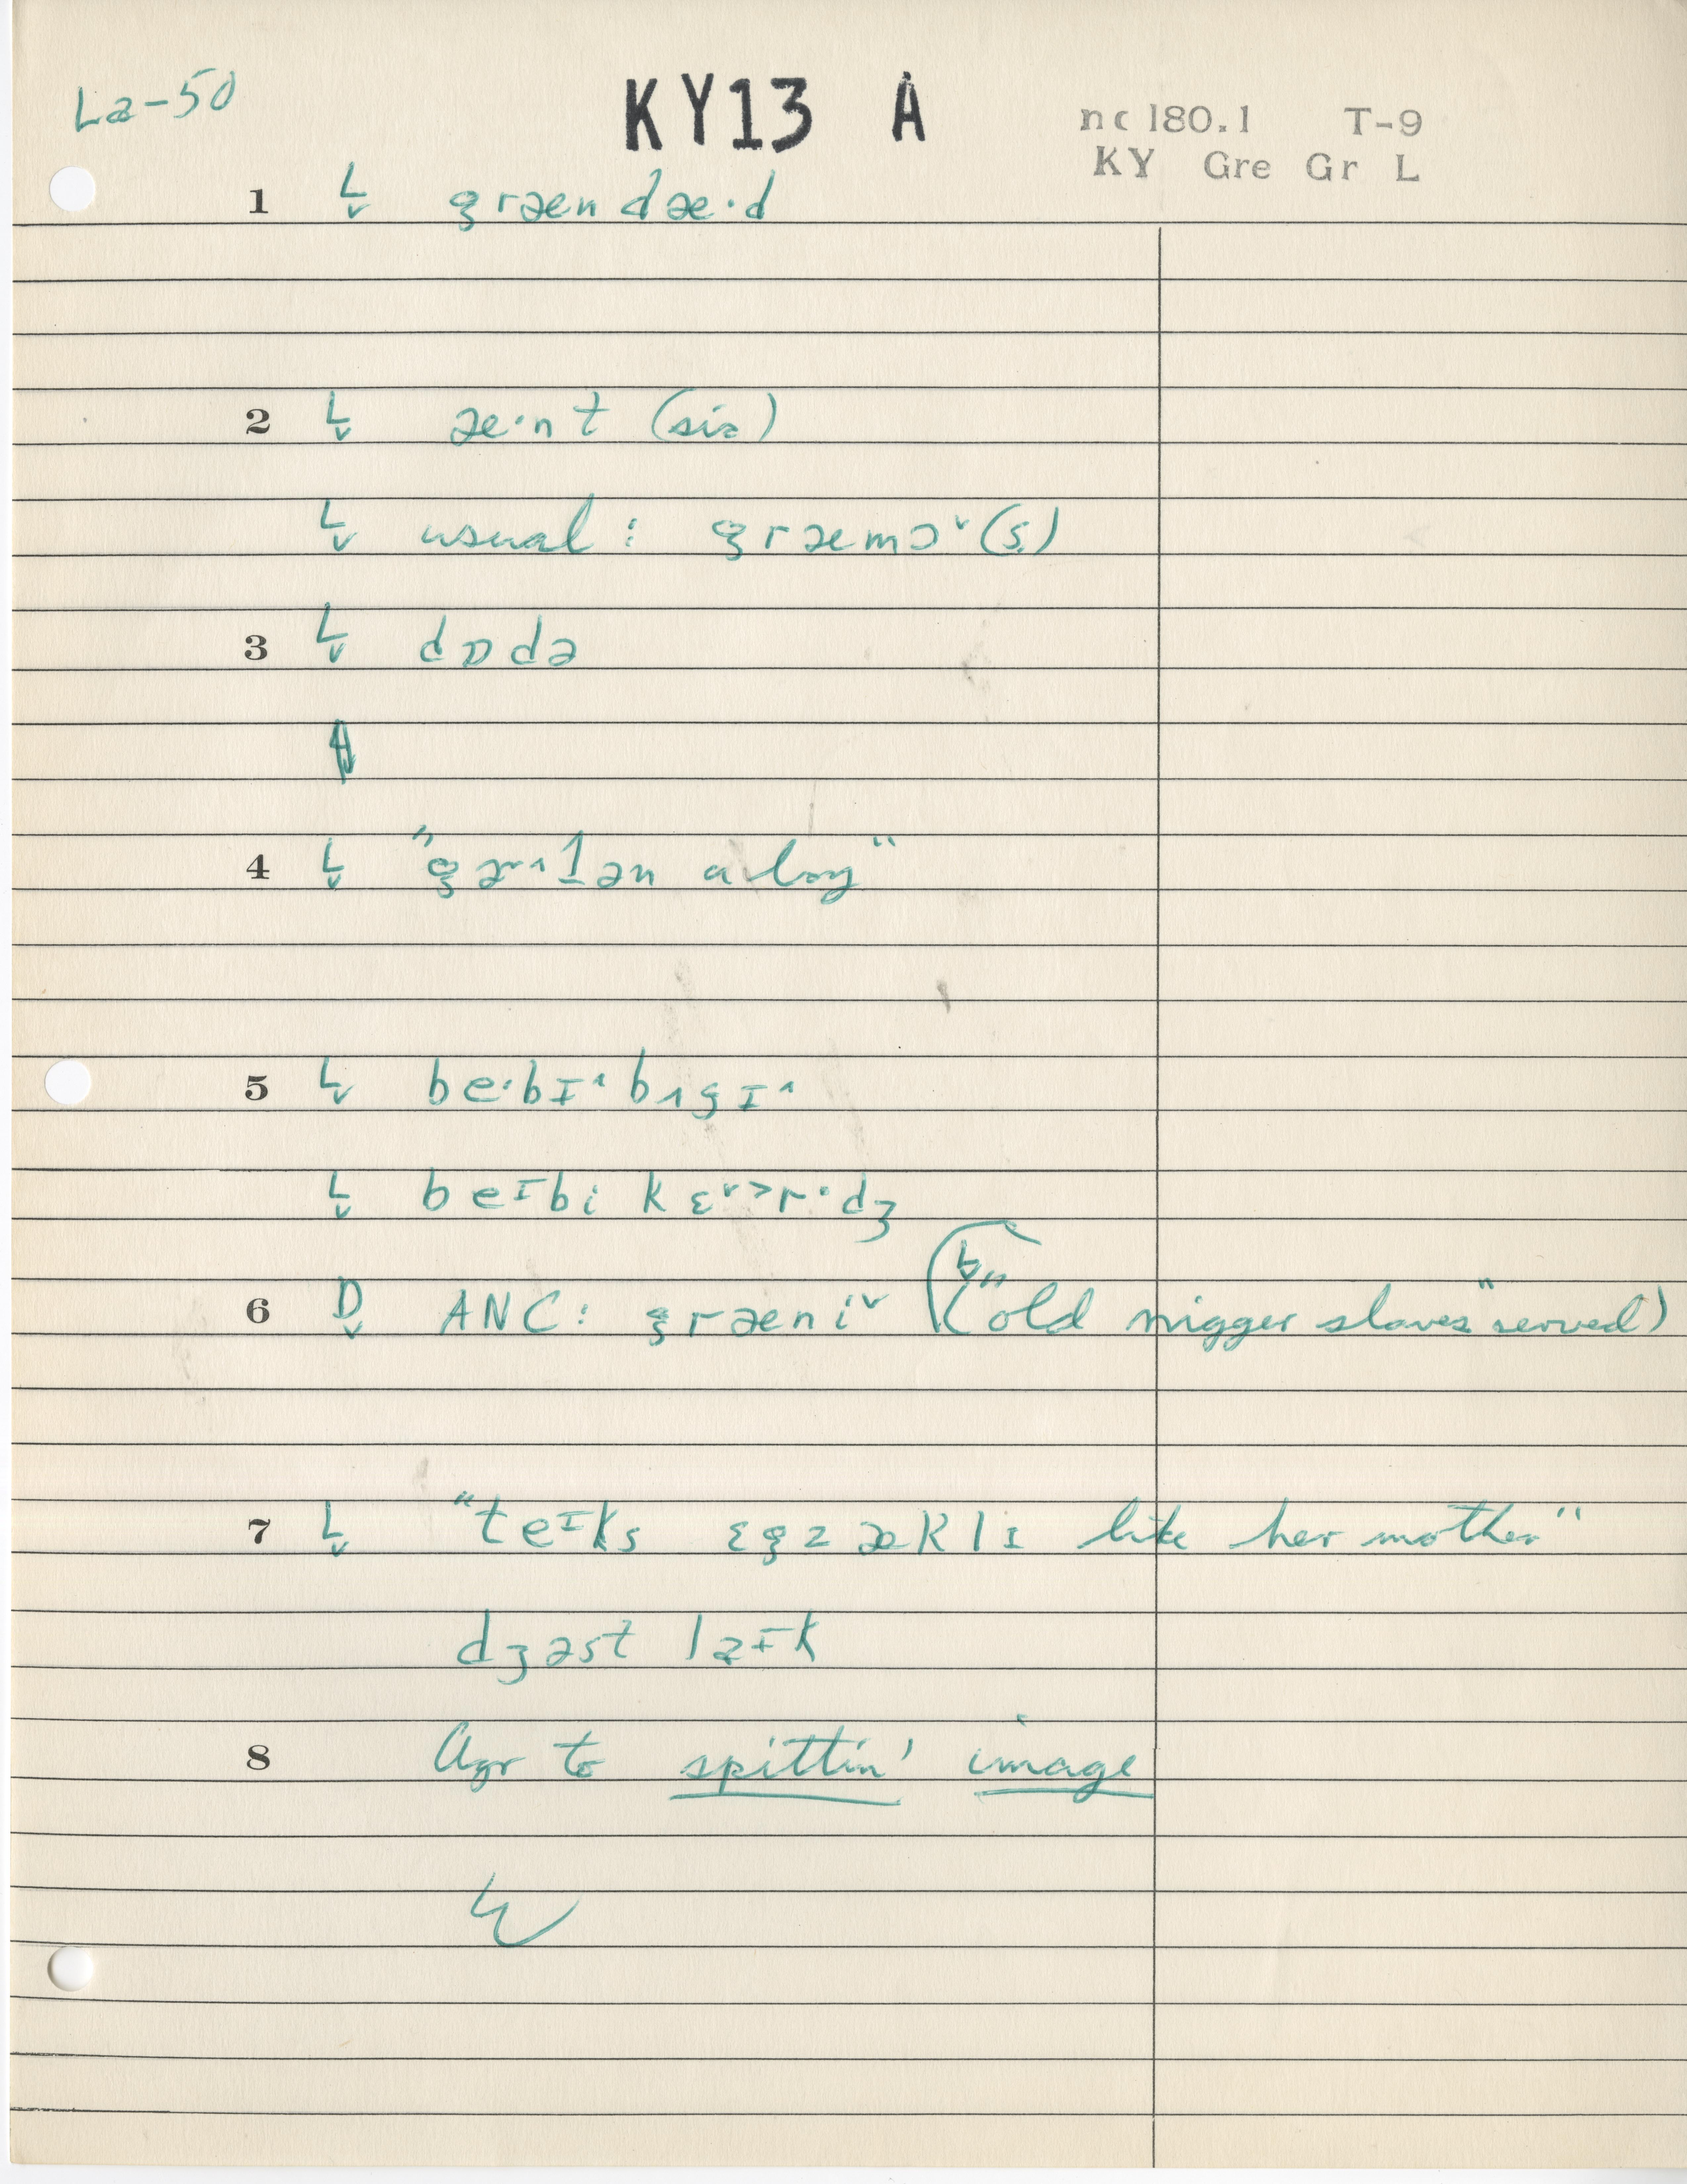 La-50
KY13 A
nc 180.1 T-9
KY Gre Gr L
1 L̬ grændæ·d
2 L̬ æ·nt (sic)
L̬ usual : græmɔ˅(s)
3 L̬ dɒdə
4 L̬ "gɚ˄lən a boy"
5 L̬ be·bɪ˄ bʌgɪ˄
L̬ beɪbi kɛ˅˃r·dʒ
6 D̬ ANC: græni˅ (L̬ "old nigger slaves" served)
7 L̬ "teɪks ɛgzæklɪ like her mother"
dʒəst laɪk
8 Agr to spittin' image